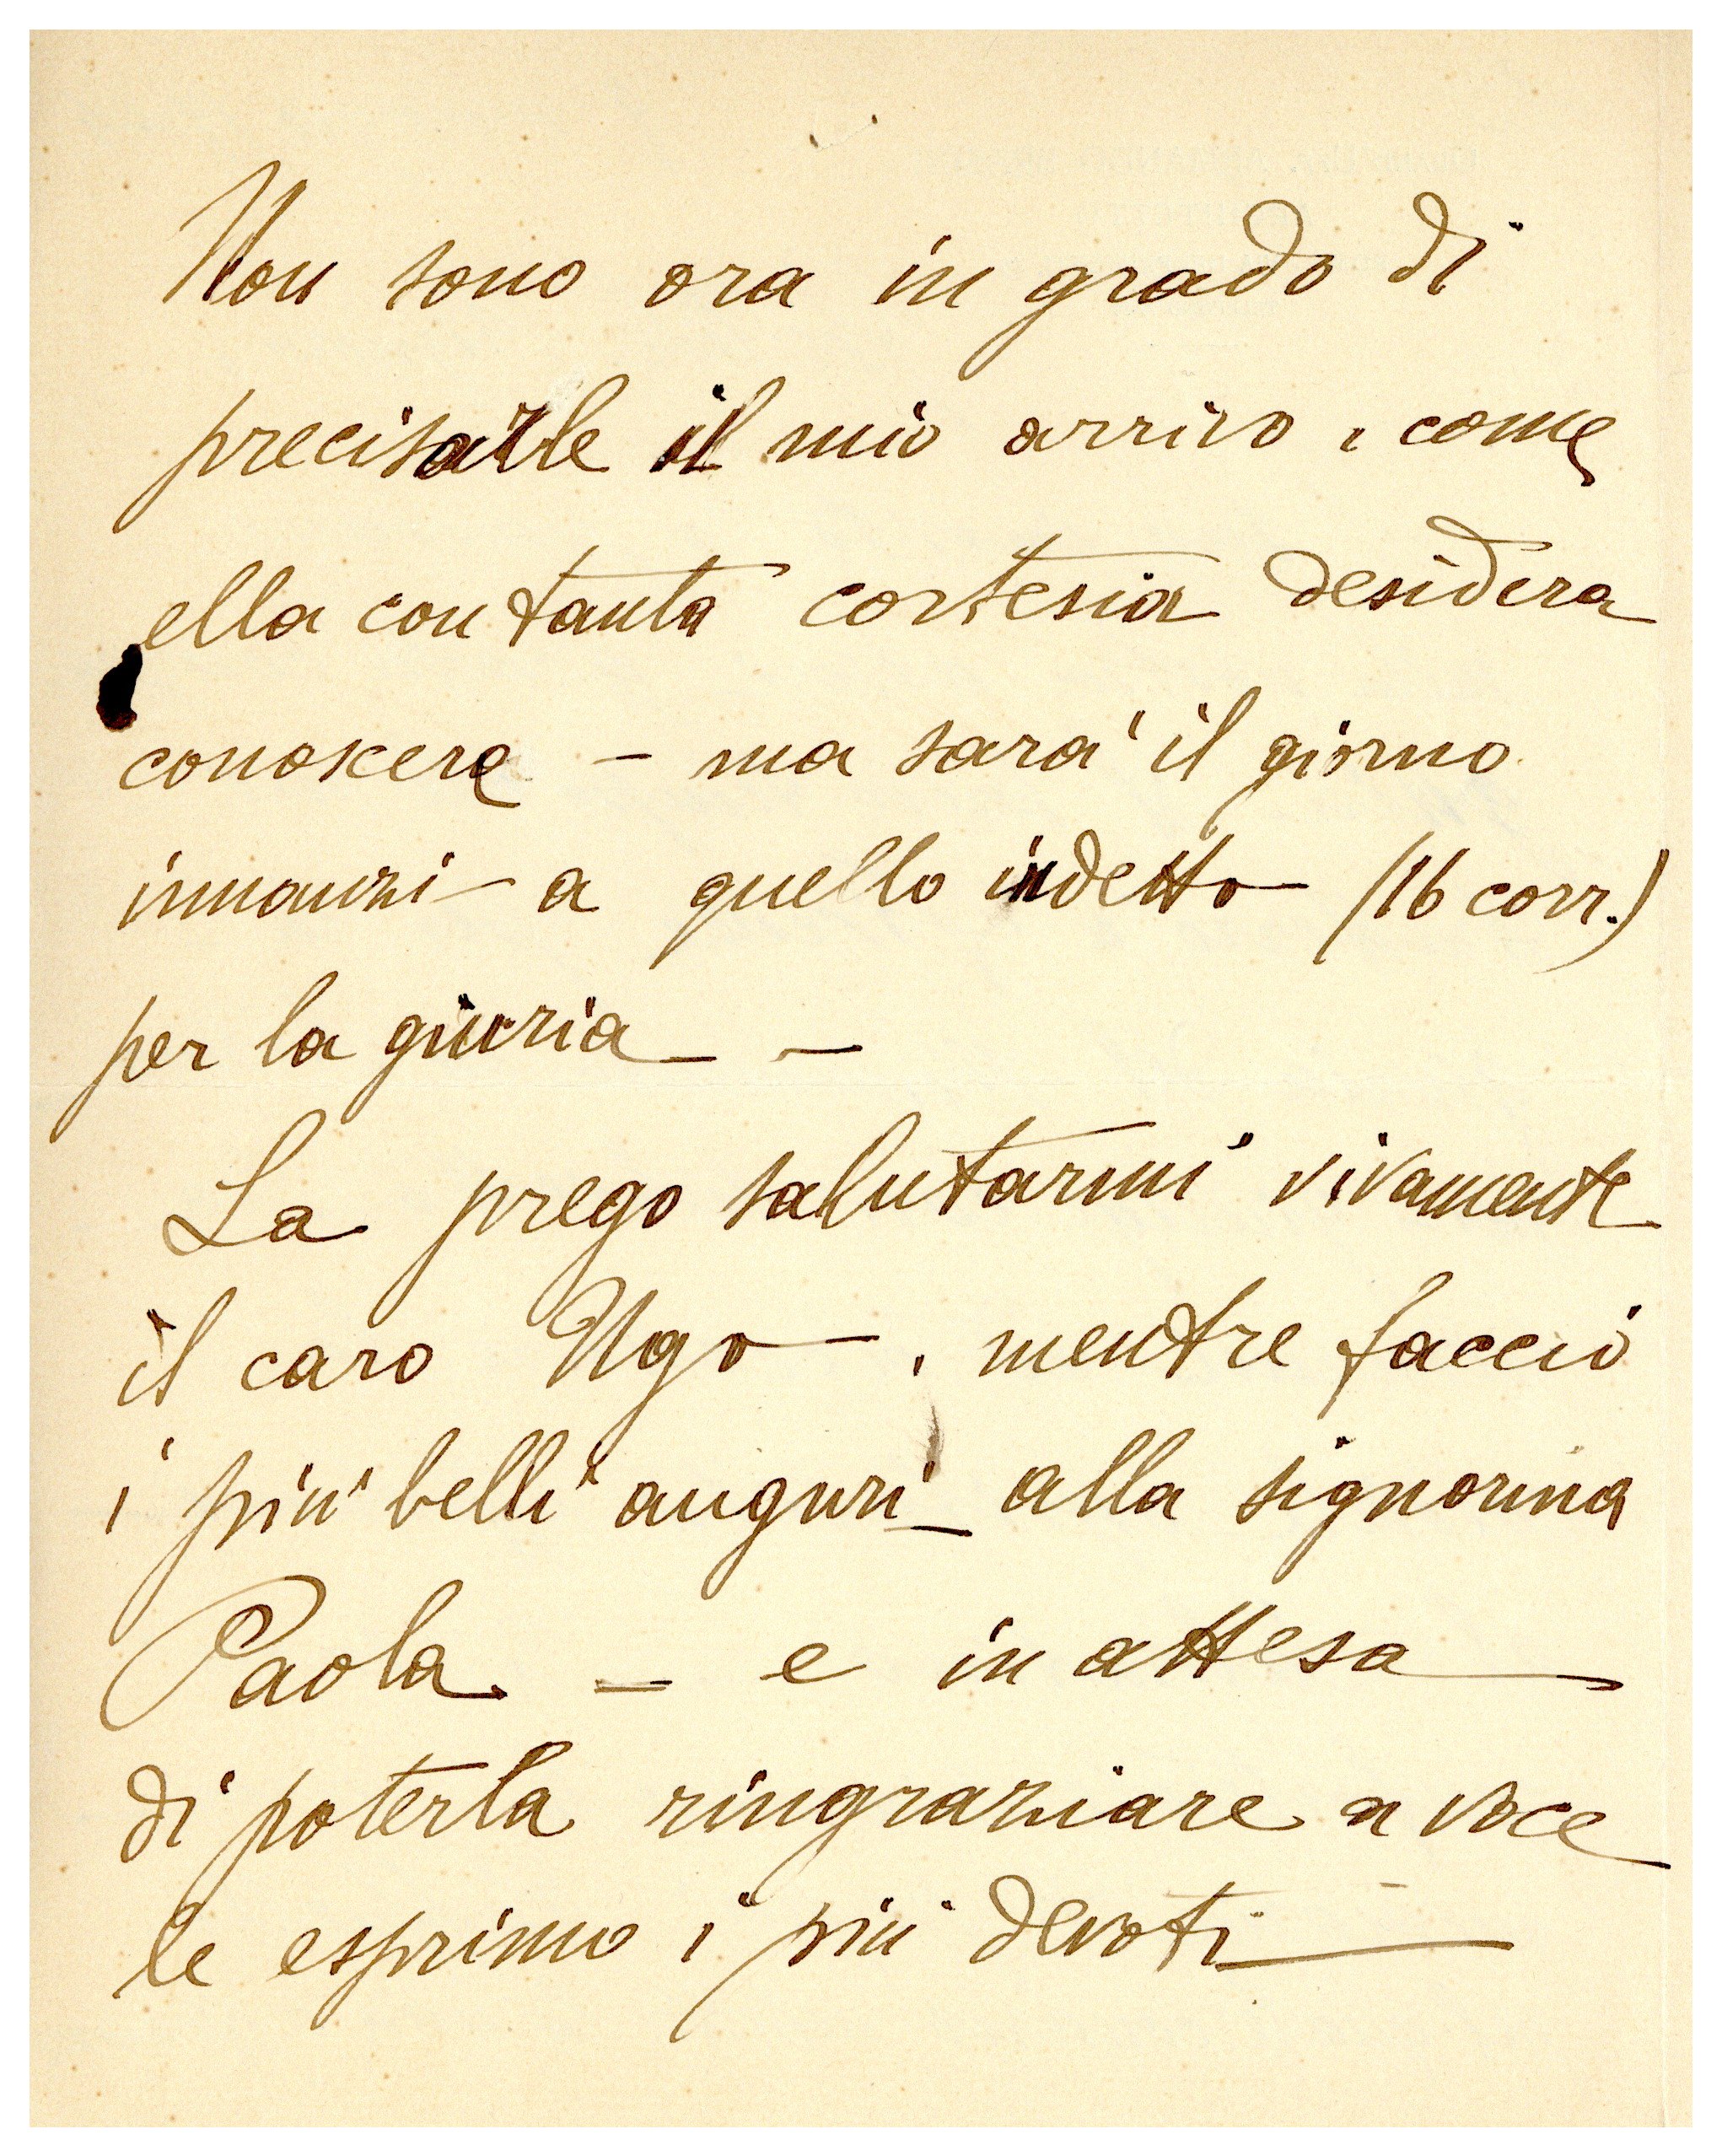 Non sono ora in grado di
precisarle il mio arrivo, come
ella con tanta cortesia desidera
conoscere - ma sarà il giorno
innanzi a quello indetto (16 corr.)
per la giuria - -
La prego salutarmi vivamente
il caro Ugo, mentre faccio
i più belli auguri alla signorina
Paola - e in attesa
di poterla ringraziare a voce
le esprimo i più devoti